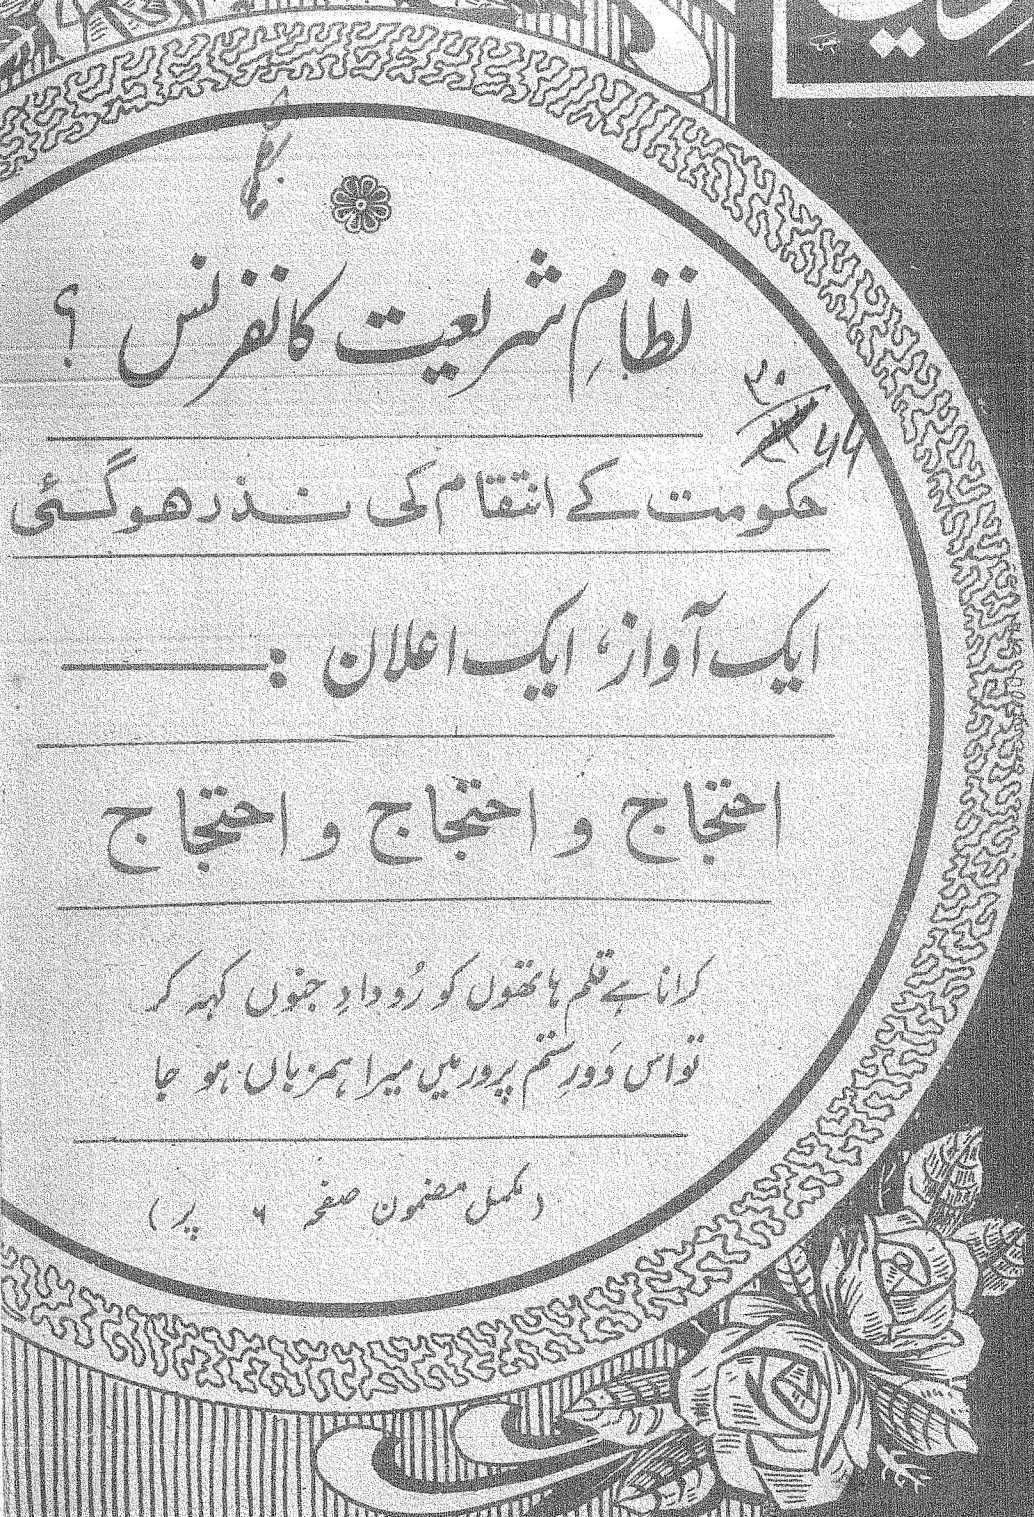 نظامِ شریعت کانفرنس ؟
حکومت کے انتقام کی نذر ھوگئی
ایک آواز، ایک اعلان :
احتجاج و احتجاج و احتجاج
کرانا ہے قلم ہاتھوں کو رُودادِ جنوں کہہ کر
تو اس دَورِ ستم پرور میں میرا ہمزباں ہو جا
(مکمل مضمون صفحہ ۶ پر)